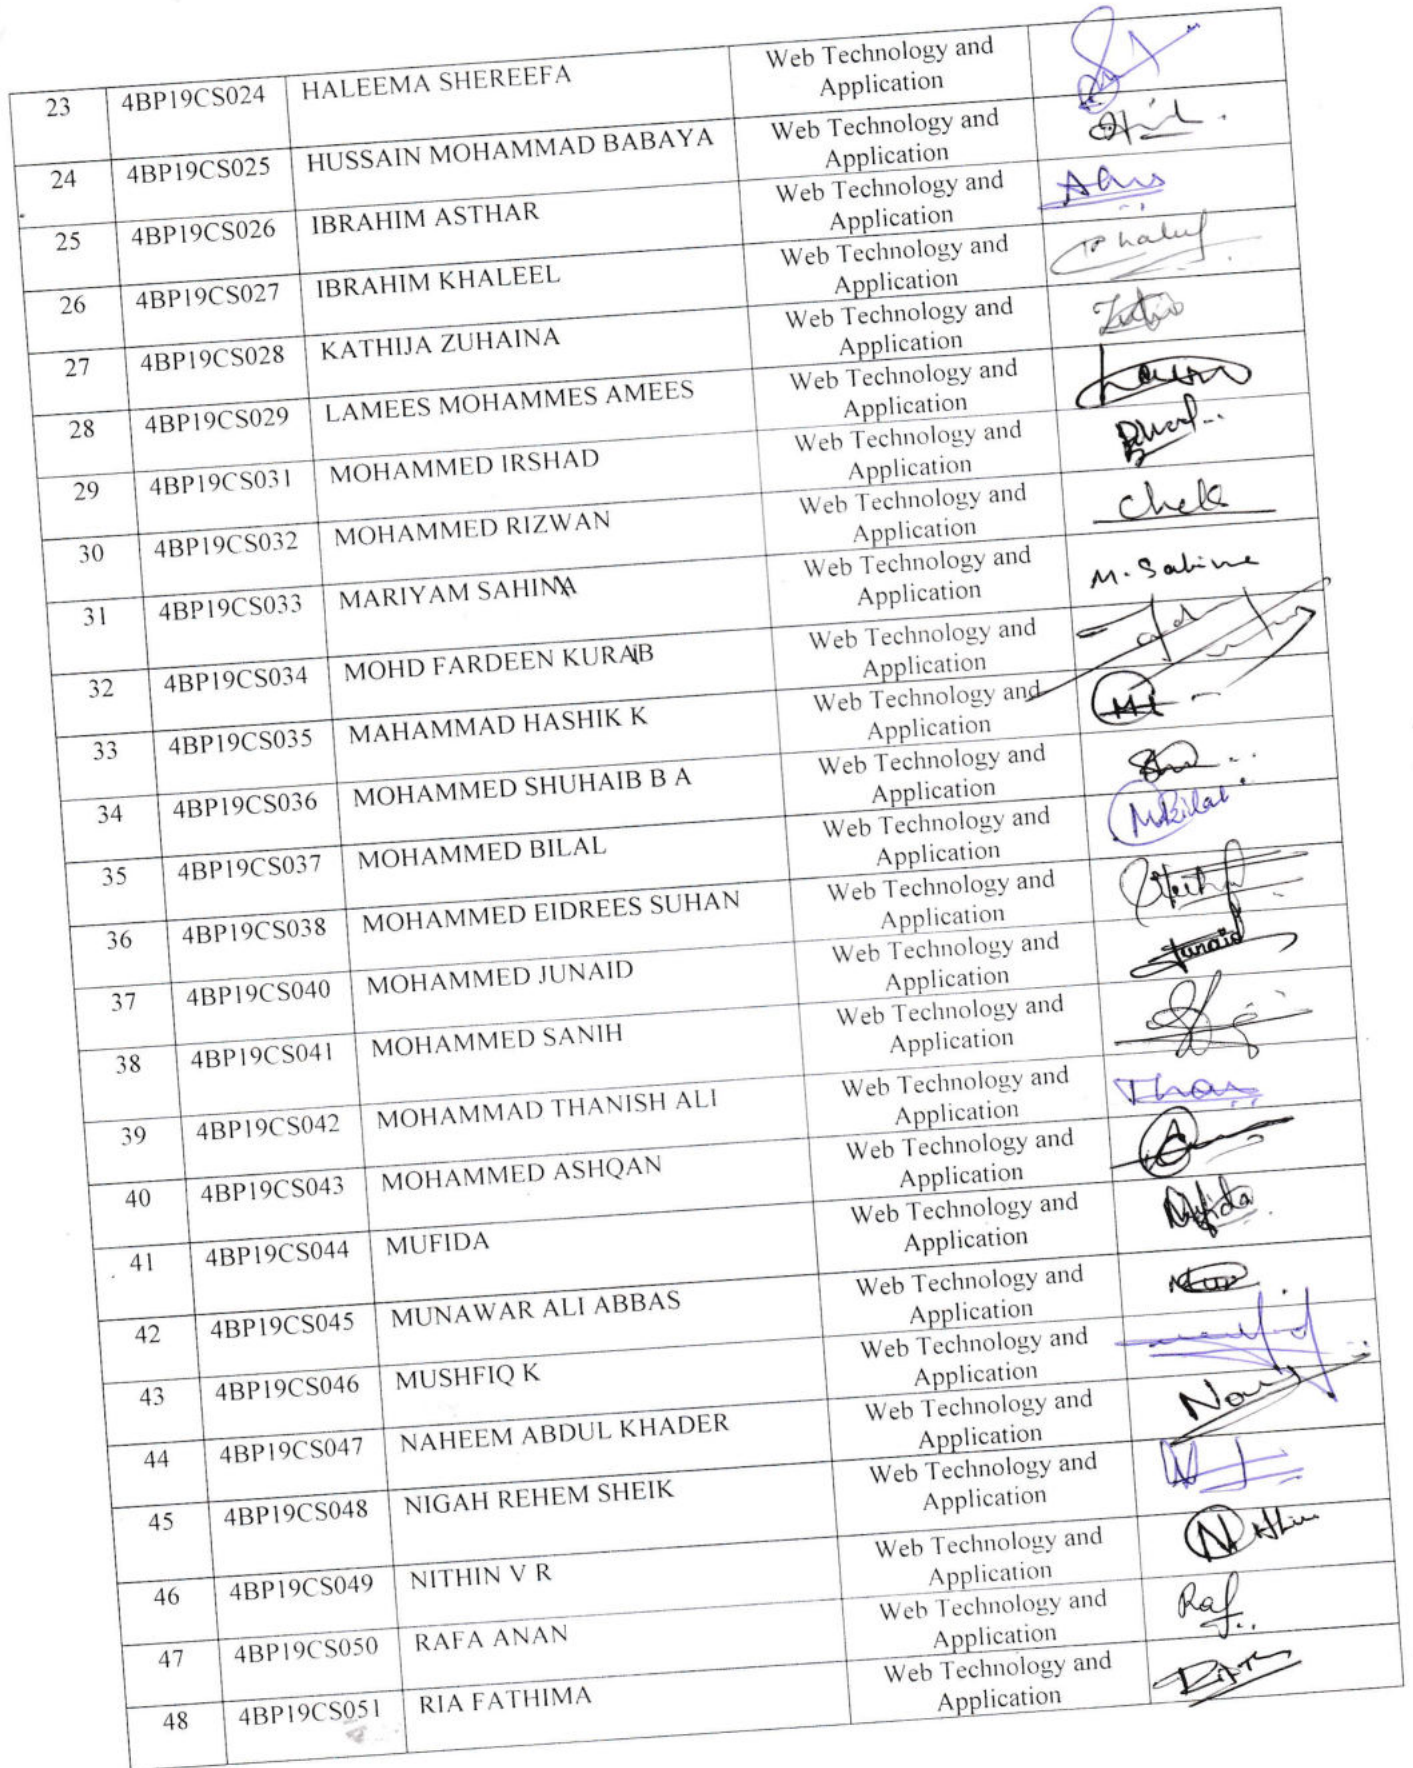 23 4BP19CS024 HALEEMA SHEREEFA Web Technology and
Application
24 4BP19CS025 HUSSAIN MOHAMMAD BABAYA Web Technology and
Application
25 4BP19CS026 IBRAHIM ASTHAR Web Technology and
Application
26 4BP19CS027 IBRAHIM KHALEEL Web Technology and
Application
27 4BP19CS028 KATHIJA ZUHAINA Web Technology and
Application
28 4BP19CS029 LAMEES MOHAMMES AMEES Web Technology and
Application
29 4BP19CS031 MOHAMMED IRSHAD Web Technology and
Application
30 4BP19CS032 MOHAMMED RIZWAN Web Technology and
Application
31 4BP19CS033 MARIYAM SAHINA Web Technology and M. Sabina
Application
32 4BP19CS034 MOHD FARDEEN KURAIB Web Technology and
Application
33 4BP19CS035 MAHAMMAD HASHIK K Web Technology and
Application
34 4BP19CS036 MOHAMMED SHUHAIB B A Web Technology and
Application
35 4BP19CS037 MOHAMMED BILAL Web Technology and M Bilal
Application
36 4BP19CS038 MOHAMMED EIDREES SUHAN Web Technology and
Application
37 4BP19CS040 MOHAMMED JUNAID Web Technology and Junaid
Application
38 4BP19CS041 MOHAMMED SANIH Web Technology and
Application
39 4BP19CS042 MOHAMMAD THANISH ALI Web Technology and
Application
40 4BP19CS043 MOHAMMED ASHQAN Web Technology and
Application
41 4BP19CS044 MUFIDA Web Technology and Mufida
Application
42 4BP19CS045 MUNAWAR ALI ABBAS Web Technology and
Application
43 4BP19CS046 MUSHFIQ K Web Technology and
Application
44 4BP19CS047 NAHEEM ABDUL KHADER Web Technology and
Application
45 4BP19CS048 NIGAH REHEM SHEIK Web Technology and
Application
46 4BP19CS049 NITHIN V R Web Technology and
Application
47 4BP19CS050 RAFA ANAN Web Technology and Raf
Application
48 4BP19CS051 RIA FATHIMA Web Technology and
Application